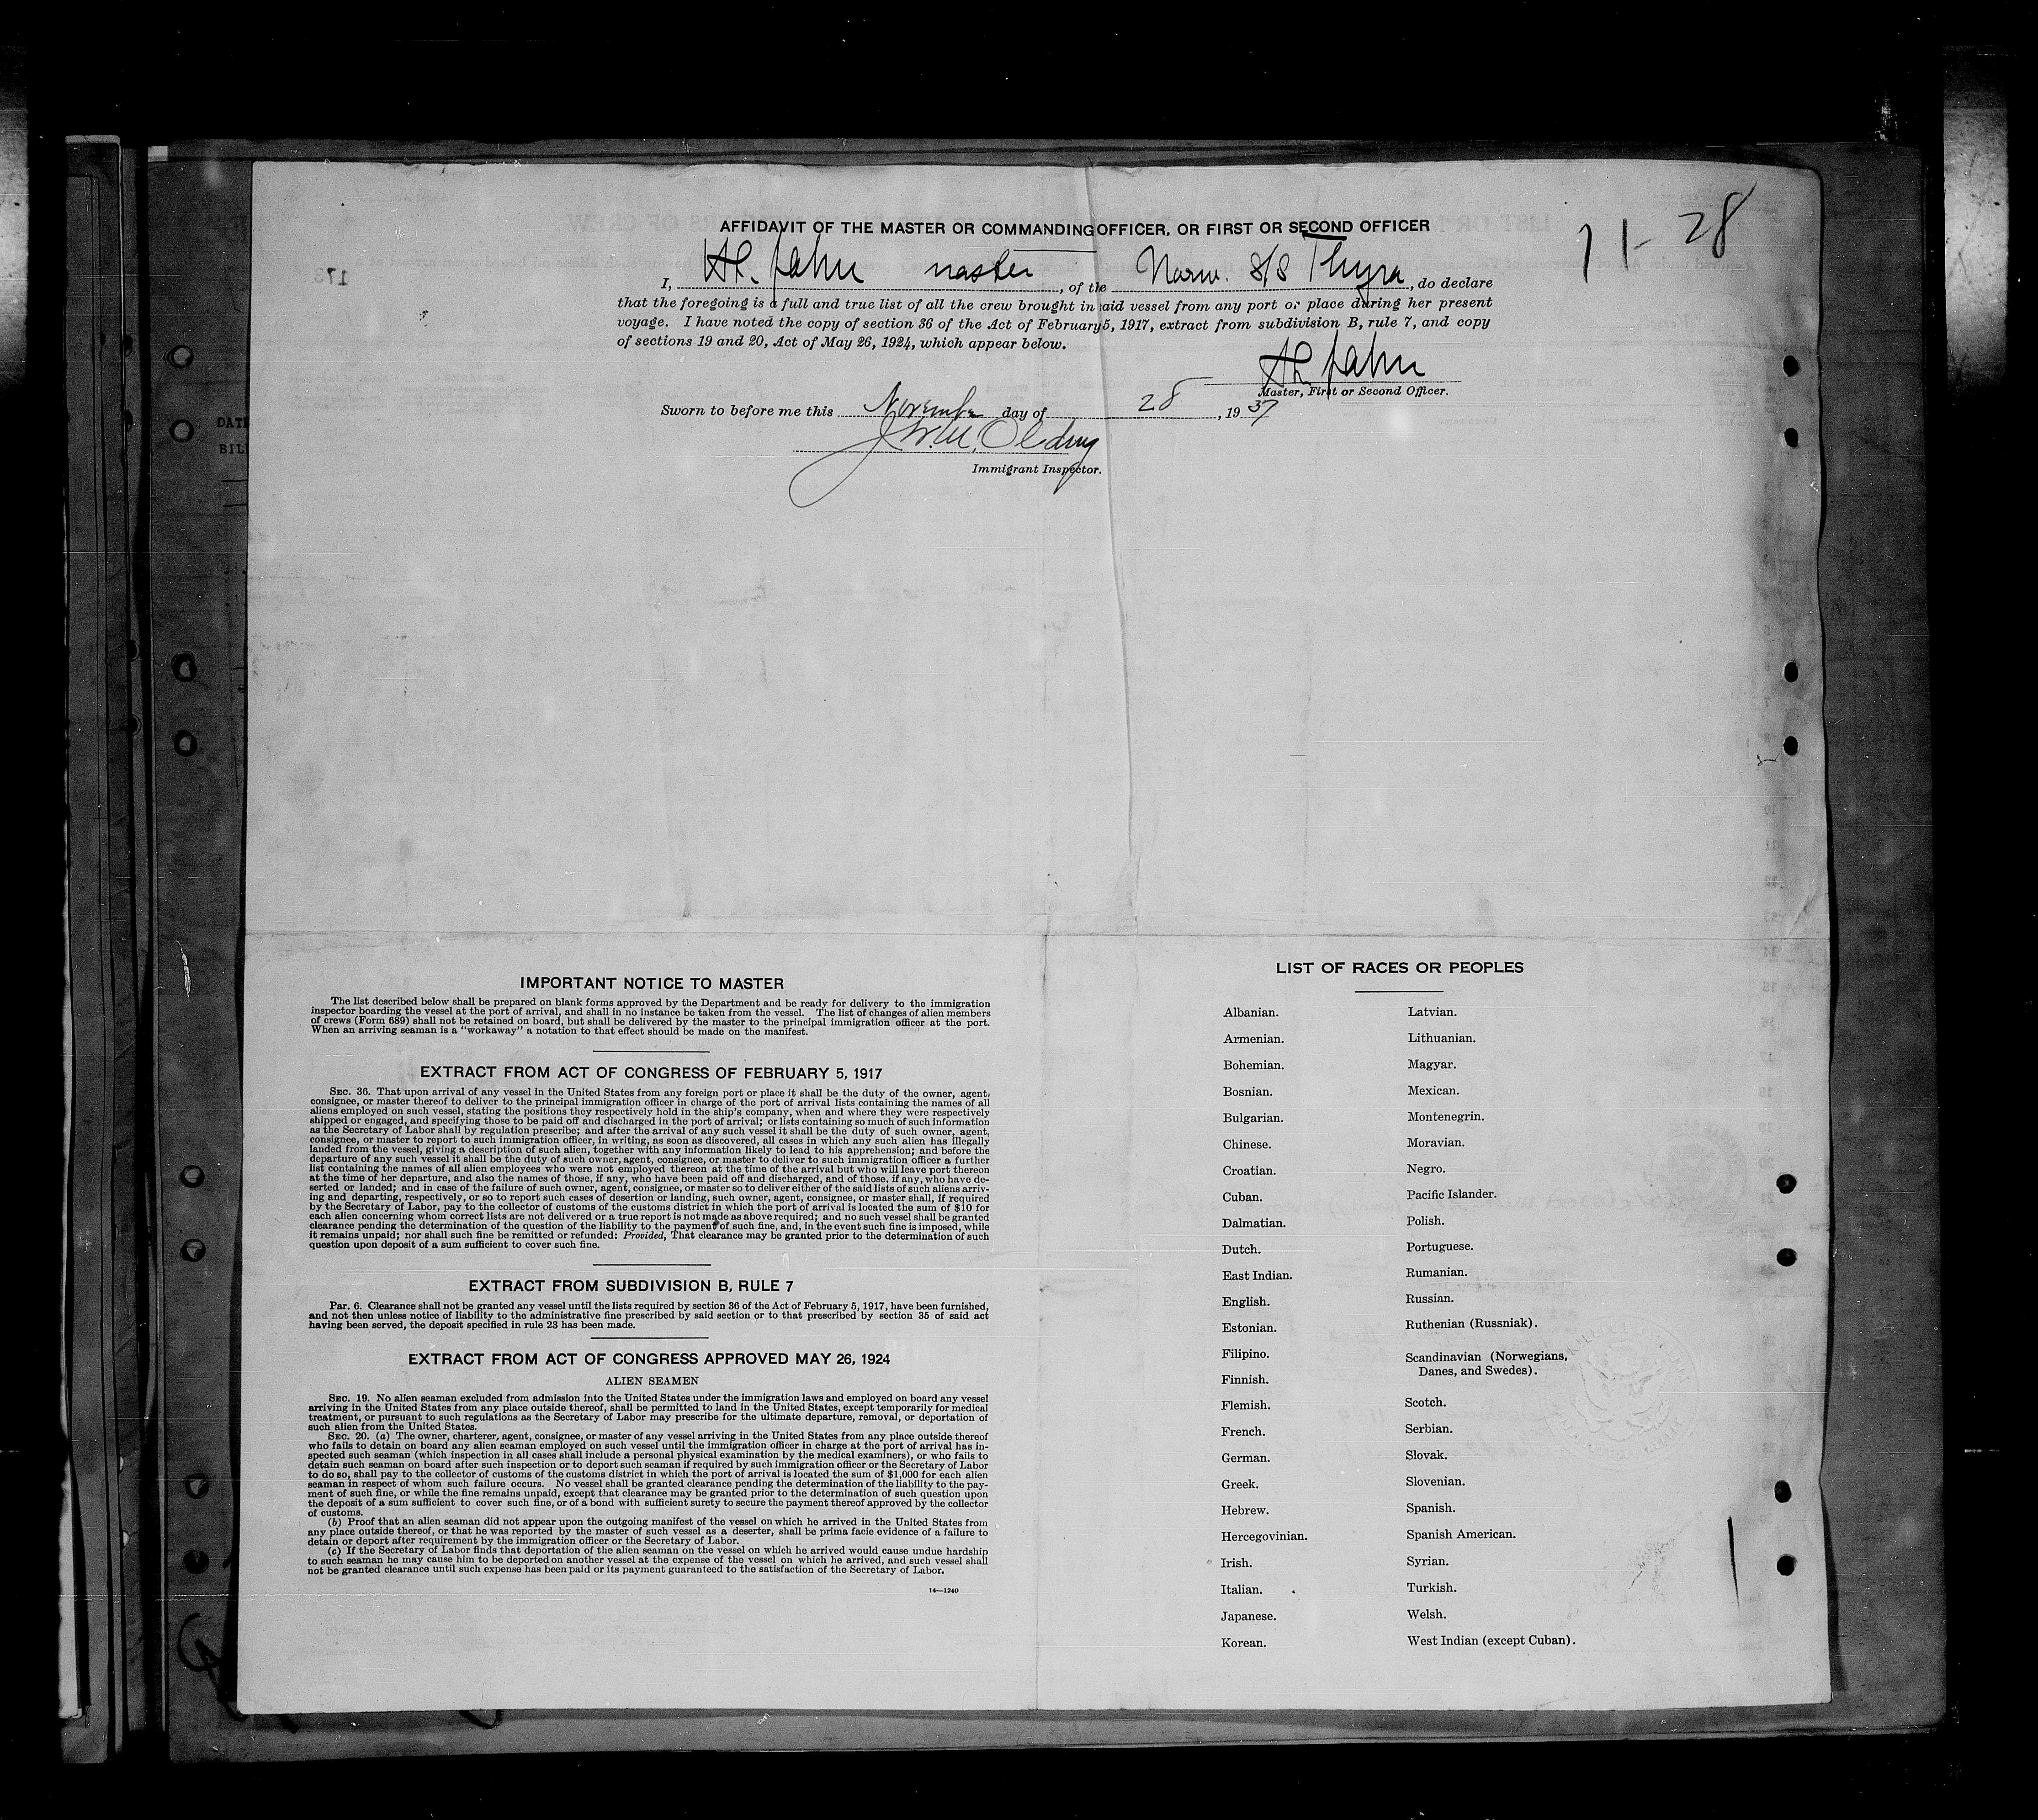 11-28
AFFIDAVIT OF THE MASTER OR COMMANDING OFFICER, OR FIRST OR SECOND OFFICER
I, Jahn master, of the Norw. S/S Thyra, do declare
that the foregoing is a full and true list of all the crew brought in aid vessel from any port or place during her present
voyage. I have noted the copy of section 36 of the Act of February 5, 1917, extract from subdivision B, rule 7, and copy
of sections 19 and 20, Act of May 26, 1924, which appear below.
Jahn
Master, First or Second Officer.
Sworn to before me this November day of 28, 1937
Immigrant Inspector.
173
DATE
BIL
IMPORTANT NOTICE TO MASTER
The list described below shall be prepared on blank forms approved by the Department and be ready for delivery to the immigration
inspector boarding the vessel at the port of arrival, and shall in no instance be taken from the vessel. The list of changes of alien members
of crews (Form 689) shall not be retained on board, but shall be delivered by the master to the principal immigration officer at the port.
When an arriving seaman is a "workaway" a notation to that effect should be made on the manifest.
EXTRACT FROM ACT OF CONGRESS OF FEBRUARY 5, 1917
SEC. 36. That upon arrival of any vessel in the United States from any foreign port or place it shall be the duty of the owner, agent,
consignee, or master thereof to deliver to the principal immigration officer in charge of the port of arrival lists containing the names of all
aliens employed on such vessel, stating the positions they respectively hold in the ship's company, when and where they were respectively
shipped or engaged, and specifying those to be paid off and discharged in the port of arrival; or lists containing so much of such information
as the Secretary of Labor shall by regulation prescribe; and after the arrival of any such vessel it shall be the duty of such owner, agent,
consignee, or master to report to such immigration officer, in writing, as soon as discovered, all cases in which any such alien has illegally
landed from the vessel, giving a description of such alien, together with any information likely to lead to his apprehension; and before the
departure of any such vessel it shall be the duty of such owner, agent, consignee, or master to deliver to such immigration officer a further
list containing the names of all alien employees who were not employed thereon at the time of the arrival but who will leave port thereon
at the time of her departure, and also the names of those, if any, who have been paid off and discharged, and of those, if any, who have de-
serted or landed; and in case of the failure of such owner, agent, consignee, or master so to deliver either of the said lists of such aliens arriv-
ing and departing, respectively, or so to report such cases of desertion or landing, such owner, agent, consignee, or master shall, if required
by the Secretary of Labor, pay to the collector of customs of the customs district in which the port of arrival is located the sum of $10 for
each alien concerning whom correct lists are not delivered or a true report is not made as above required; and no such vessel shall be granted
clearance pending the determination of the question of the liability to the payment of such fine, and, in the event such fine is imposed, while
it remains unpaid; nor shall such fine be remitted or refunded: Provided, That clearance may be granted prior to the determination of such
question upon deposit of a sum sufficient to cover such fine.
EXTRACT FROM SUBDIVISION B, RULE 7
Par. 6. Clearance shall not be granted any vessel until the lists required by section 36 of the Act of February 5, 1917, have been furnished,
and not then unless notice of liability to the administrative fine prescribed by said section or to that prescribed by section 35 of said act
having been served, the deposit specified in rule 23 has been made.
EXTRACT FROM ACT OF CONGRESS APPROVED MAY 26, 1924
ALIEN SEAMEN
SEC. 19. No alien seaman excluded from admission into the United States under the immigration laws and employed on board any vessel
arriving in the United States from any place outside thereof, shall be permitted to land in the United States, except temporarily for medical
treatment, or pursuant to such regulations as the Secretary of Labor may prescribe for the ultimate departure, removal, or deportation of
such alien from the United States.
SEC. 20. (a) The owner, charterer, agent, consignee, or master of any vessel arriving in the United States from any place outside thereof
who fails to detain on board any alien seaman employed on such vessel until the immigration officer in charge at the port of arrival has in-
spected such seaman (which inspection in all cases shall include a personal physical examination by the medical examiners), or who fails to
detain such seaman on board after such inspection or to deport such seaman if required by such immigration officer or the Secretary of Labor
to do so, shall pay to the collector of customs of the customs district in which the port of arrival is located the sum of $1,000 for each alien
seaman in respect of whom such failure occurs. No vessel shall be granted clearance pending the determination of the liability to the pay-
ment of such fine, or while the fine remains unpaid, except that clearance may be granted prior to the determination of such question upon
the deposit of a sum sufficient to cover such fine, or of a bond with sufficient surety to secure the payment thereof approved by the collector
of customs.
(b) Proof that an alien seaman did not appear upon the outgoing manifest of the vessel on which he arrived in the United States from
any place outside thereof, or that he was reported by the master of such vessel as a deserter, shall be prima facie evidence of a failure to
detain or deport after requirement by the immigration officer or the Secretary of Labor.
(c) If the Secretary of Labor finds that deportation of the alien seaman on the vessel on which he arrived would cause undue hardship
to such seaman he may cause him to be deported on another vessel at the expense of the vessel on which he arrived, and such vessel shall
not be granted clearance until such expense has been paid or its payment guaranteed to the satisfaction of the Secretary of Labor.
14—1240
LIST OF RACES OR PEOPLES
Albanian.
Armenian.
Bohemian.
Bosnian.
Bulgarian.
Chinese.
Croatian.
Cuban.
Dalmatian.
Dutch.
East Indian.
English.
Estonian.
Filipino.
Finnish.
Flemish.
French.
German.
Greek.
Hebrew.
Hercegovinian.
Irish.
Italian.
Japanese.
Korean.
Latvian.
Lithuanian.
Magyar.
Mexican.
Montenegrin.
Moravian.
Negro.
Pacific Islander.
Polish.
Portuguese.
Rumanian.
Russian.
Ruthenian (Russniak).
Scandinavian (Norwegians,
Danes, and Swedes).
Scotch.
Serbian.
Slovak.
Slovenian.
Spanish.
Spanish American.
Syrian.
Turkish.
Welsh.
West Indian (except Cuban).